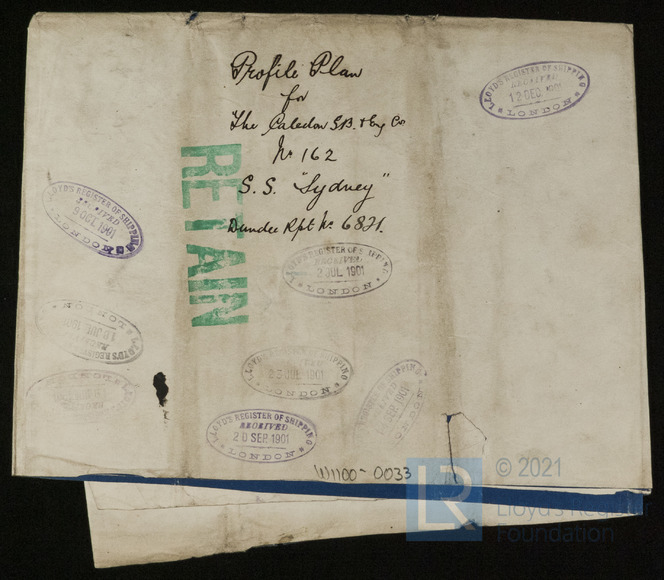 Profile Plan
for
The Caledon S.B. & Eng Co
No 162
S.S. "Sydney"
Dundee Rpt No 6821.
RETAIN
LLOYD'S REGISTER OF SHIPPING
RECEIVED
12 DEC. 1901
LONDON
LLOYD'S REGISTER OF SHIPPING
RECEIVED
1901
LONDON
LLOYD'S REGISTER OF SHIPPING
RECEIVED
2 JUL 1901
LONDON
LLOYD'S REGISTER
JUL 190
LONDON
LLOYD'S REGISTER OF SHIPPING
25 JUL 1901
LONDON
REGISTER OF SHIPPING
SEP. 1901
LONDON
LLOYD'S REGISTER OF SHIPPING
RECEIVED
20 SEP. 1901
LONDON
W1100-0033
LR
© 2021
Lloyd's Register
Foundation